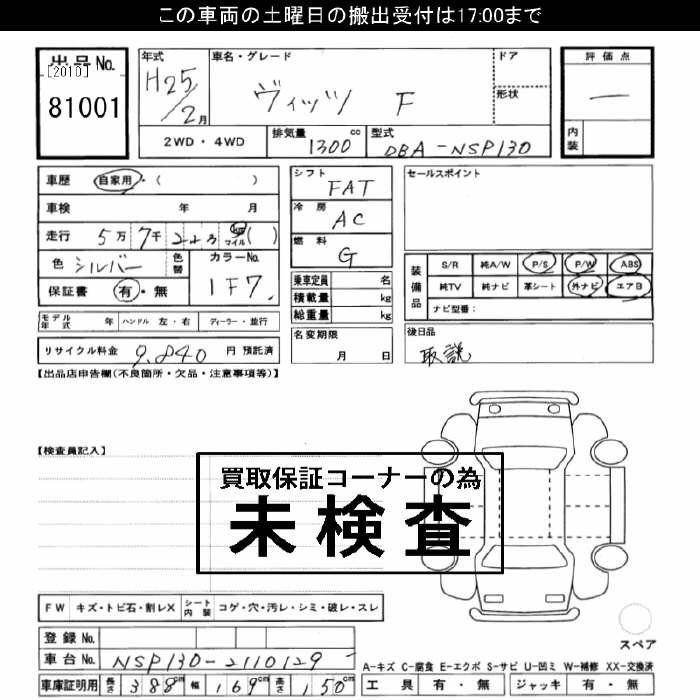 この車両の土曜日の搬出受付は17:00まで
出品No.
[2010]
81001
年式
H25/2月
車名・グレード
ヴィッツ F
ドア
形状
評価点
—
内装
2WD・4WD
排気量 1300 cc
型式 DBA-NSP130
車歴 自家用・( )
車検 年 月
走行 5万7千223 km マイル ( )
色 シルバー 色替
カラーNo. 1F7
保証書 有・無
シフト FAT
冷房 AC
燃料 G
乗車定員 名
積載量 kg
総重量 kg
セールスポイント
装備品
S/R 純A/W P/S P/W ABS
純TV 純ナビ 革シート 外ナビ エアB
ナビ型番:
モデル年式 年 ハンドル 左・右 ディーラー・並行
リサイクル料金 9.840 円 預託済
名変期限 月 日
後日品
取説
【出品店申告欄(不良箇所・欠品・注意事項等)】
【検査員記入】
買取保証コーナーの為
未検査
FW キズ・トビ石・割レX シート内装 コゲ・穴・汚レ・シミ・破レ・スレ
スペア
登録No.
車台No. NSP130-2110129
車庫証明用 長さ 388cm 幅 169cm 高さ 150cm
A-キズ C-腐食 E-エクボ S-サビ U-凹ミ W-補修 XX-交換済
工具 有・無 ジャッキ 有・無